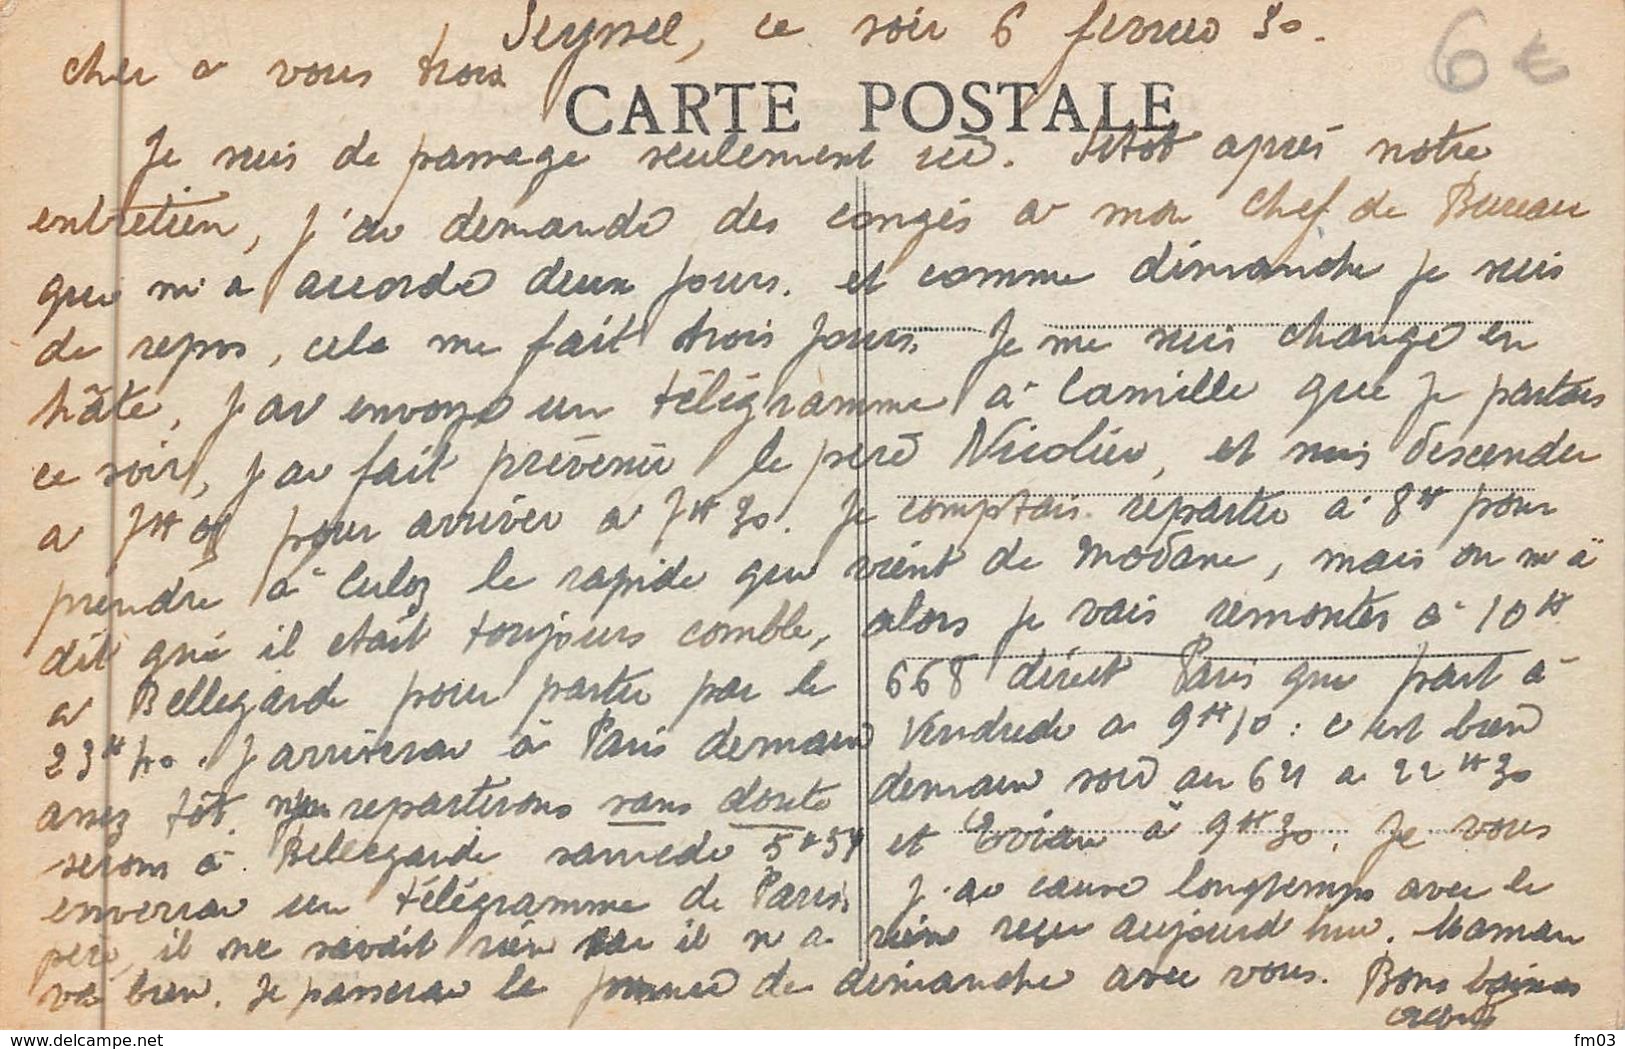 Seyssel, ce soir 6 février 30.
6 €
cher à vous trois
CARTE POSTALE
Je suis de passage seulement ici. Sitôt après notre
entretien, j'ai demandé des congés à mon chef de Bureau
qui m'a accordé deux jours. et comme dimanche je suis
de repos, cela me fait trois jours. Je me suis changé en
hâte, j'ai envoyé un télégramme à Camille que je partais
ce soir, j'ai fait prévenir le père Nicolier, et suis descendu
à 7H pour arriver à 7H30. Je comptais repartir à 8H pour
prendre à Culoz le rapide qui vient de Modane, mais on m'a
dit que il était toujours comble, alors je vais remonter à 10H
à Bellegarde pour partir par le 668 direct Paris qui part à
23H40. J'arriverai à Paris demain Vendredi à 9H10 : c'est bien
assez tôt. repartirons sans doute demain soir au 621 à 22H30
serons à Bellegarde samedi 5H54 et Evian à 9H30. Je vous
enverrai un télégramme de Paris. J'ai causé longtemps avec le
père, il ne savait rien car il n'a rien reçu aujourd'hui. Maman
va bien. Je passerai la journée de dimanche avec vous. Bons baisers
delcampe.net
fm03